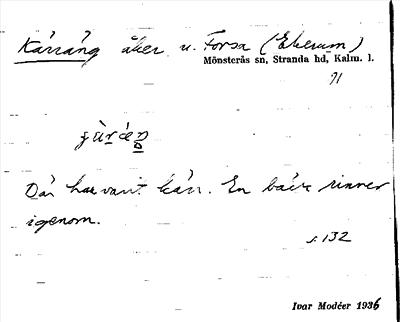 Kärräng åker u. Forsa (Ekerum)
Mönsterås sn, Stranda hd, Kalm. l.
71
Där har varit kärr. En bäck rinner
igenom.
s. 132
Ivar Modéer 1936